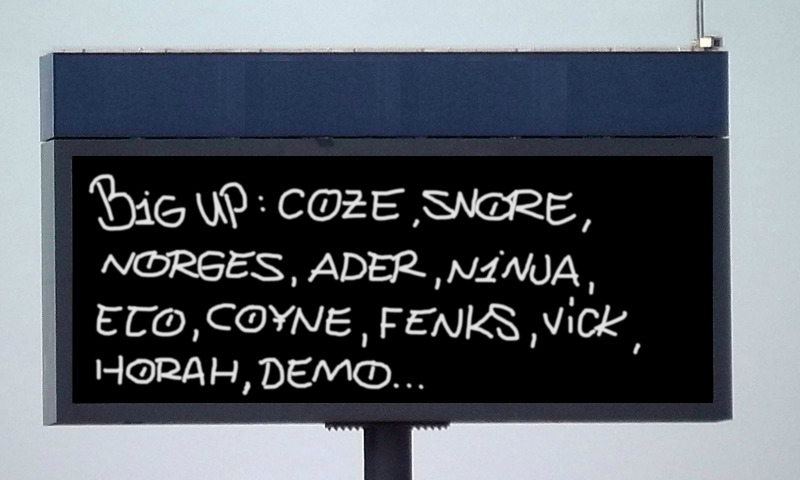 BiG UP: COZE, SNORE,
NORGES, ADER, NiNJA,
ETO, COYNE, FENKS, ViCK,
HORAH, DEMO...